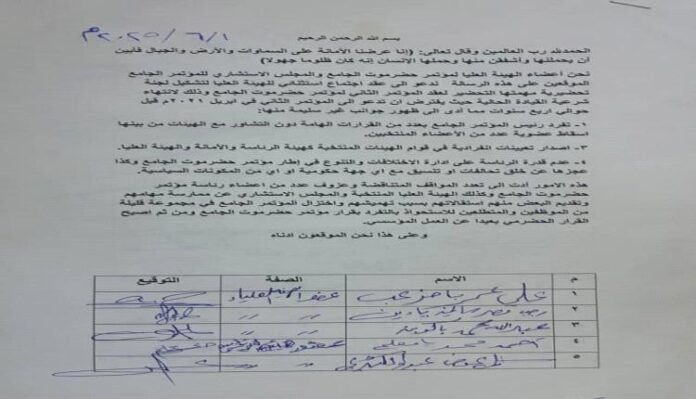 ٢٠٢٥/٦/١م
بسم الله الرحمن الرحيم
الحمدلله رب العالمين وقال تعالى: (إنا عرضنا الأمانة على السماوات والأرض والجبال فأبين
أن يحملنها وأشفقن منها وحملها الانسان إنه كان ظلوما جهولا)
نحن أعضاء الهيئة العليا لمؤتمر حضرموت الجامع والمجلس الاستشاري للمؤتمر الجامع
الموقعين على هذه الرسالة ندعو الى عقد اجتماع استثنائي للهيئة العليا لتشكيل لجنة
تحضيرية مهمتها التحضير لعقد المؤتمر الثاني لمؤتمر حضرموت الجامع وذلك لانتهاء
شرعية القيادة الحالية حيث يفترض ان تدعو الى المؤتمر الثاني في ابريل ٢٠٢١م قبل
حوالي اربع سنوات مما أدى الى ظهور جوانب غير سليمة منها:
١- تفرد رئيس المؤتمر الجامع بعدد من القرارات الهامة دون التشاور مع الهيئات من بينها
اسقاط عضوية عدد من الأعضاء المنتخبين.
٣- اصدار تعيينات انفرادية في قوام الهيئات المنتخبة كهيئة الرئاسة والأمانة والهيئة العليا.
٤- عدم قدرة الرئاسة على ادارة الاختلافات والتنوع في إطار مؤتمر حضرموت الجامع وكذا
عجزها عن خلق تحالفات او تنسيق مع اي جهة حكومية او اي من المكونات السياسية.
هذه الامور ادت الى تعدد المواقف المتناقضة وعزوف عدد من اعضاء رئاسة مؤتمر
حضرموت الجامع وكذلك الهيئة العليا المنتخبة والمجلس الاستشاري عن ممارسة مهامهم
وتقديم البعض منهم استقالاتهم بسبب تهميشهم واختزال المؤتمر الجامع في مجموعة قليلة
من الموظفين والمتطلعين للاستحواذ بالتفرد بقرار مؤتمر حضرموت الجامع ومن ثم اصبح
القرار الحضرمي بعيدا عن العمل المؤسسي.
وعلى هذا نحن الموقعون ادناه
م الاسم الصفة التوقيع
١ علي عمر عضو الهيئة العليا
٢ " "
٣ عبدالله محمد " "
٤ احمد محمد عضو
٥ " "